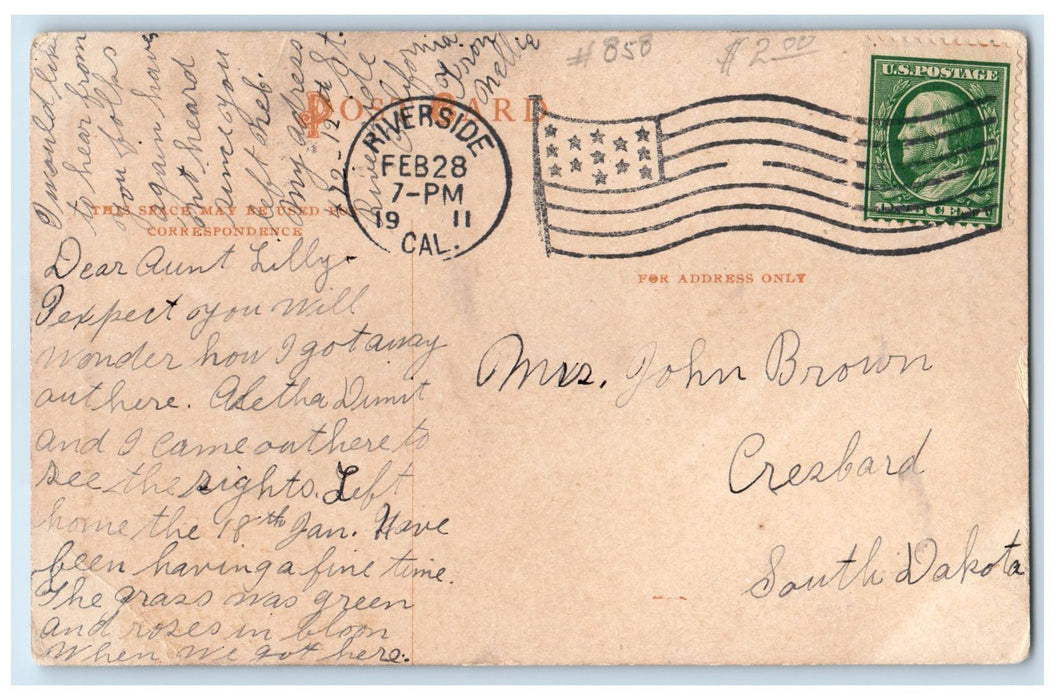 #858
$2.00
U.S. POSTAGE
POST CARD
RIVERSIDE
FEB 28
7-PM
19 11
CAL.
THIS SPACE MAY BE USED FOR
CORRESPONDENCE
FOR ADDRESS ONLY
Dear Aunt Lilly-
I expect you will
wonder how I got away
out here. Aletha Dimit
and I came out here to
see the sights. Left
home the 18th Jan. Have
been having a fine time.
The grass was green
and roses in bloom
when we got here.
I would like
to hear from
you folks
again have
not heard
since you
left Reb.
My address
12th St.
Riverside
California
Nellie
Mrs. John Brown
Cresbard
South Dakota